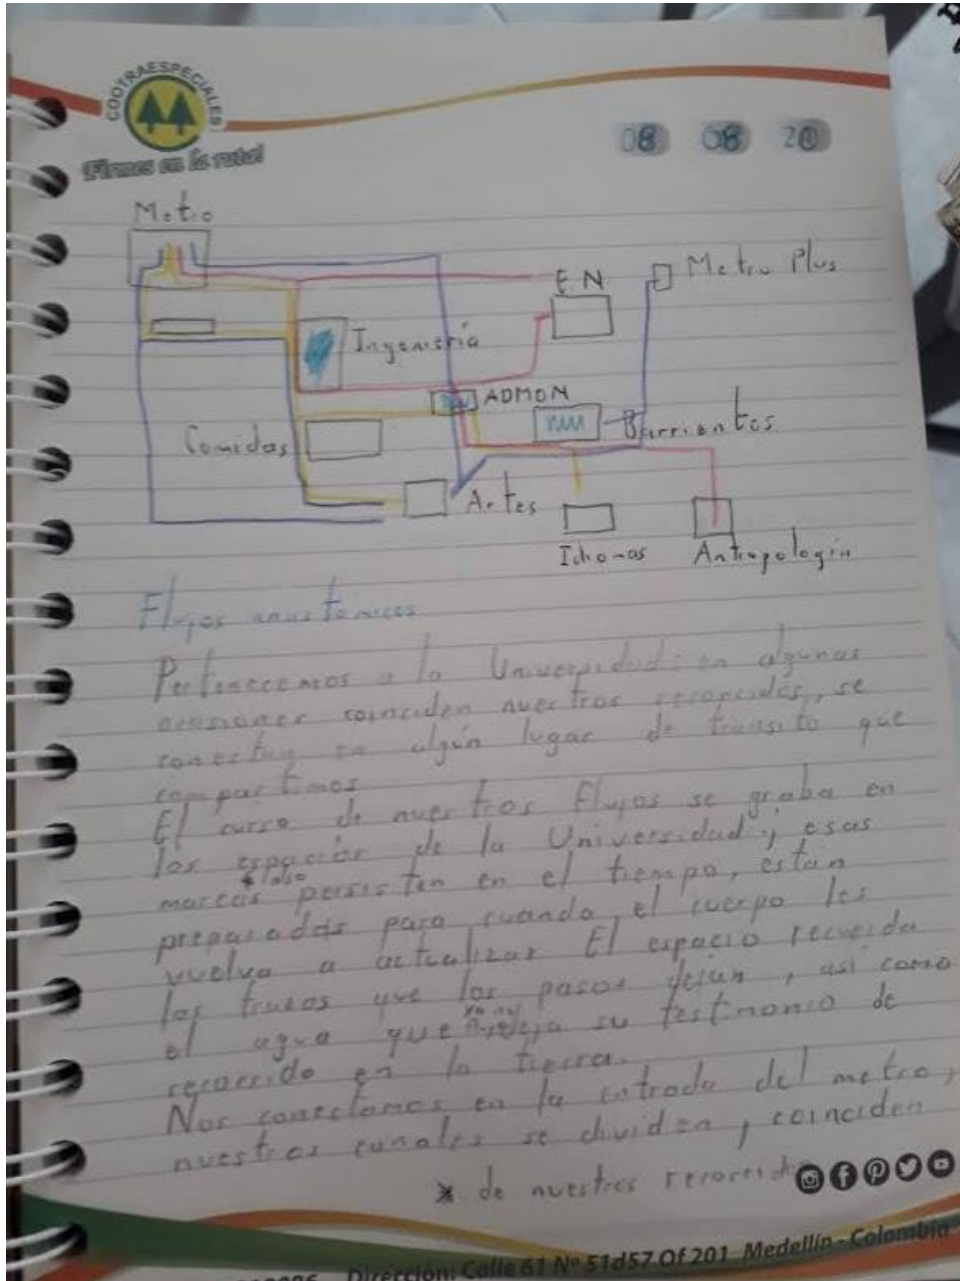 COOTRAESPECIALES
Firmes en la ruta!
08 08 20
Metro
E.N
Metro Plus
Ingeniería
ADMON
Comidas
Barrientos
Artes
Idiomas
Antropología
Flujos
Pertenecemos a la Universidad: en algunas
ocasiones coinciden nuestros recorridos, se
conectan en algún lugar de transito que
compartimos
El curso de nuestros flujos se graba en
los espacios de la Universidad y esas
marcas * persisten en el tiempo, estan
preparadas para cuando el cuerpo les
vuelva a actualizar El espacio recuerda
los trazos que los pasos dejan, así como
el agua que deja su testimonio de
recorrido en la tierra.
Nos conectamos en la entrada del metro,
nuestros canales se dividen, coinciden
* de nuestros
Dirección: Calle 61 Nº 51d57 Of 201 Medellín - Colombia